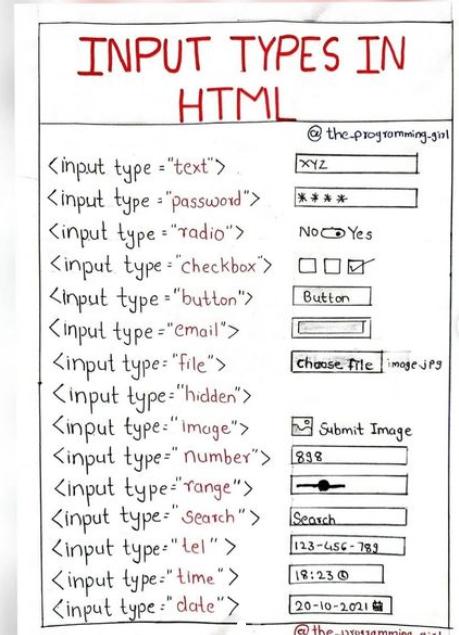 INPUT TYPES IN
HTML
@ the_programming_girl
<input type ="text"> XYZ
<input type ="password"> ****
<input type ="radio"> No Yes
<input type ="checkbox">
<input type ="button"> Button
<input type ="email">
<input type="file"> choose file image.jpg
<input type="hidden">
<input type="image"> Submit Image
<input type=" number"> 898
<input type="range">
<input type="Search"> Search
<input type="tel "> 123-456-789
<input type="time "> 18:23
<input type="date"> 20-10-2021
@the_programming_girl